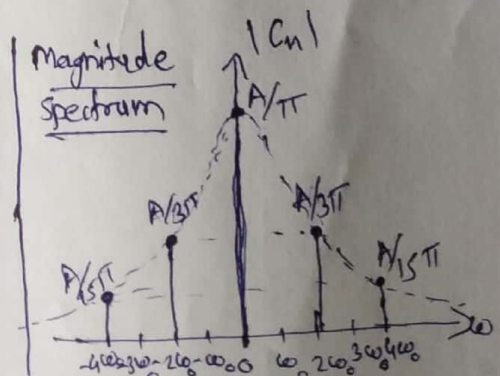 Magnitude
Spectrum
|Cn|
A/π
A/3π
A/3π
A/15π
A/15π
-4ω₀ -3ω₀ -2ω₀ -ω₀ 0 ω₀ 2ω₀ 3ω₀ 4ω₀ ω